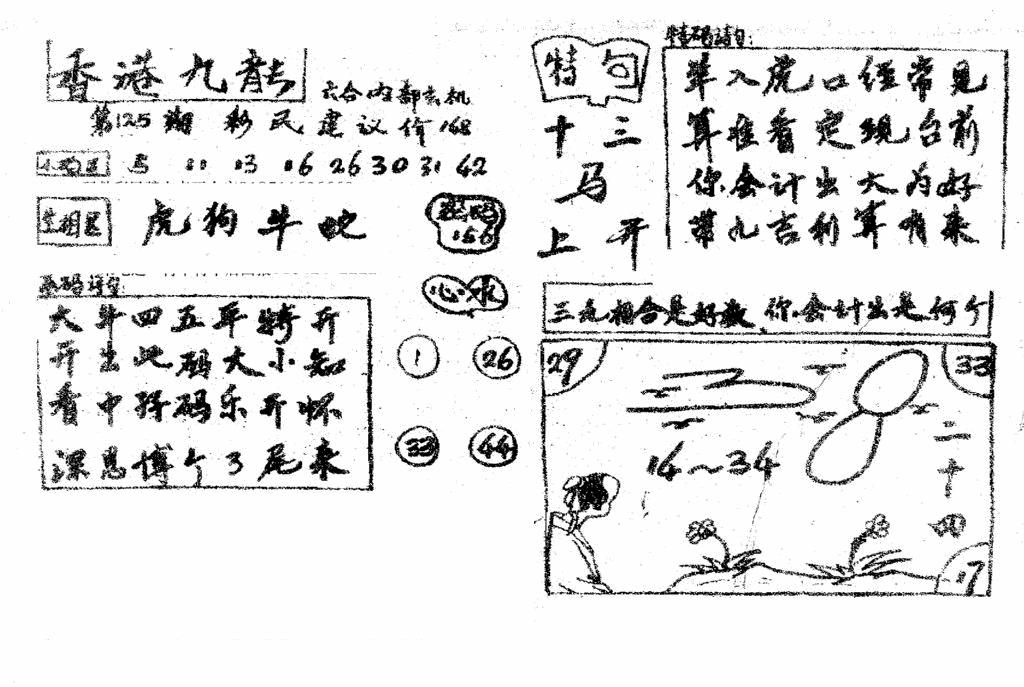 香港九龍
六合内部玄机
第125期 彩民建议价168
马 11 13 16 26 30 31 42
生相区 虎狗牛蛇
密码
166
心水
1 26
33 44
大牛四五平特开
开出此码大小知
看中好码乐开怀
深思博个3尾来
特句
十三
马
上开
特码诗句:
单入虎口经常见
算准看定现台前
你会计出大为好
第九吉利算有来
三九相合是好数 你会计出是何个
29
33
14~34
二十四
17